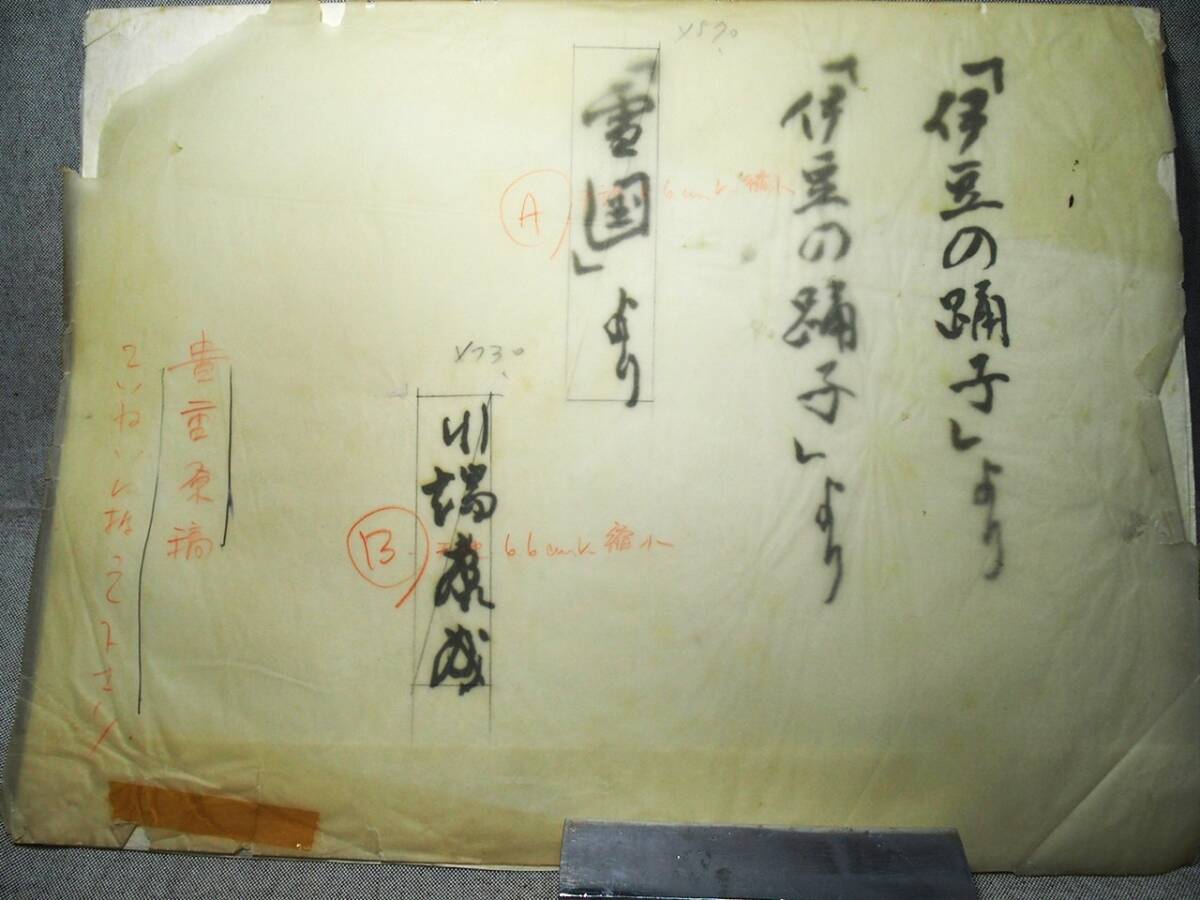 「伊豆の踊子」より
「伊豆の踊子」より
「雪国」より
川端康成
A
6cmに縮小
B
66cmに縮小
貴重原稿
ていねいに扱って下さい